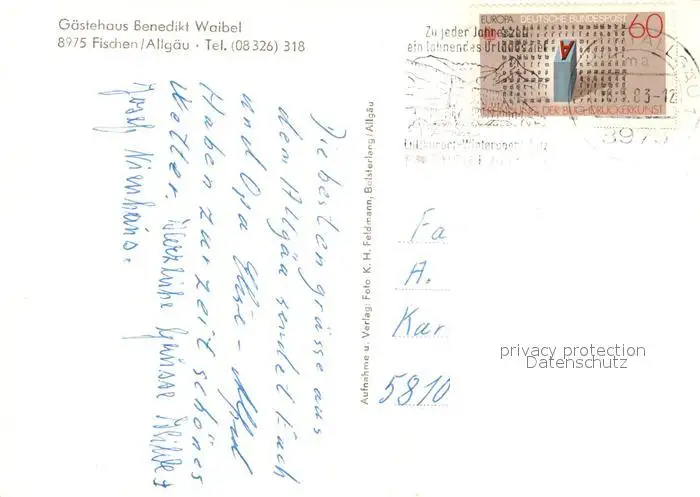 Gästehaus Benedikt Waibel
8975 Fischen/Allgäu · Tel. (08326) 318
Zu jeder Jahreszeit
ein lohnendes Urlaubsziel
EUROPA DEUTSCHE BUNDESPOST 60
DER BUCHDRUCKERKUNST
8975
Die besten grüsse aus
dem Allgäu sendet Euch
und Opa
Haben zur zeit schönes
Wetter. Herzliche Grüsse
Josef Nienhaus.
Aufnahme u. Verlag: Foto K. H. Feldmann, Bolsterlang/Allgäu
Fa
A.
Kar
5810
privacy protection
Datenschutz